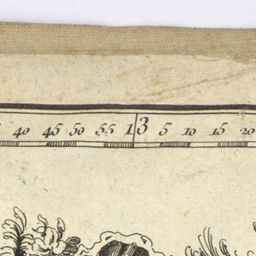 40 45 50 55 13 5 10 15 20